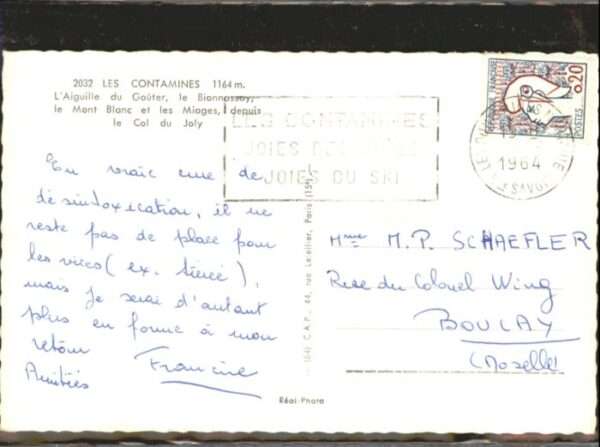 2032 LES CONTAMINES 1164 m.
L'Aiguille du Goûter, le Bionnassay,
le Mont Blanc et les Miages, depuis
le Col du Joly
LES CONTAMINES
JOIES DU SKI
REPUBLIQUE FRANCAISE
0,20
POSTES
1964
En vraie cure de
désintoxication, il ne
reste pas de place pour
les vices (ex. tiercé),
mais je serai d'autant
plus en forme à mon
retour
Amitiés
Francine
Mme M.P. SCHAEFLER
Rue du Colonel Wing
BOULAY
(Moselle)
C.A.P., 44, rue Letellier, Paris (15e)
Réal-Photo